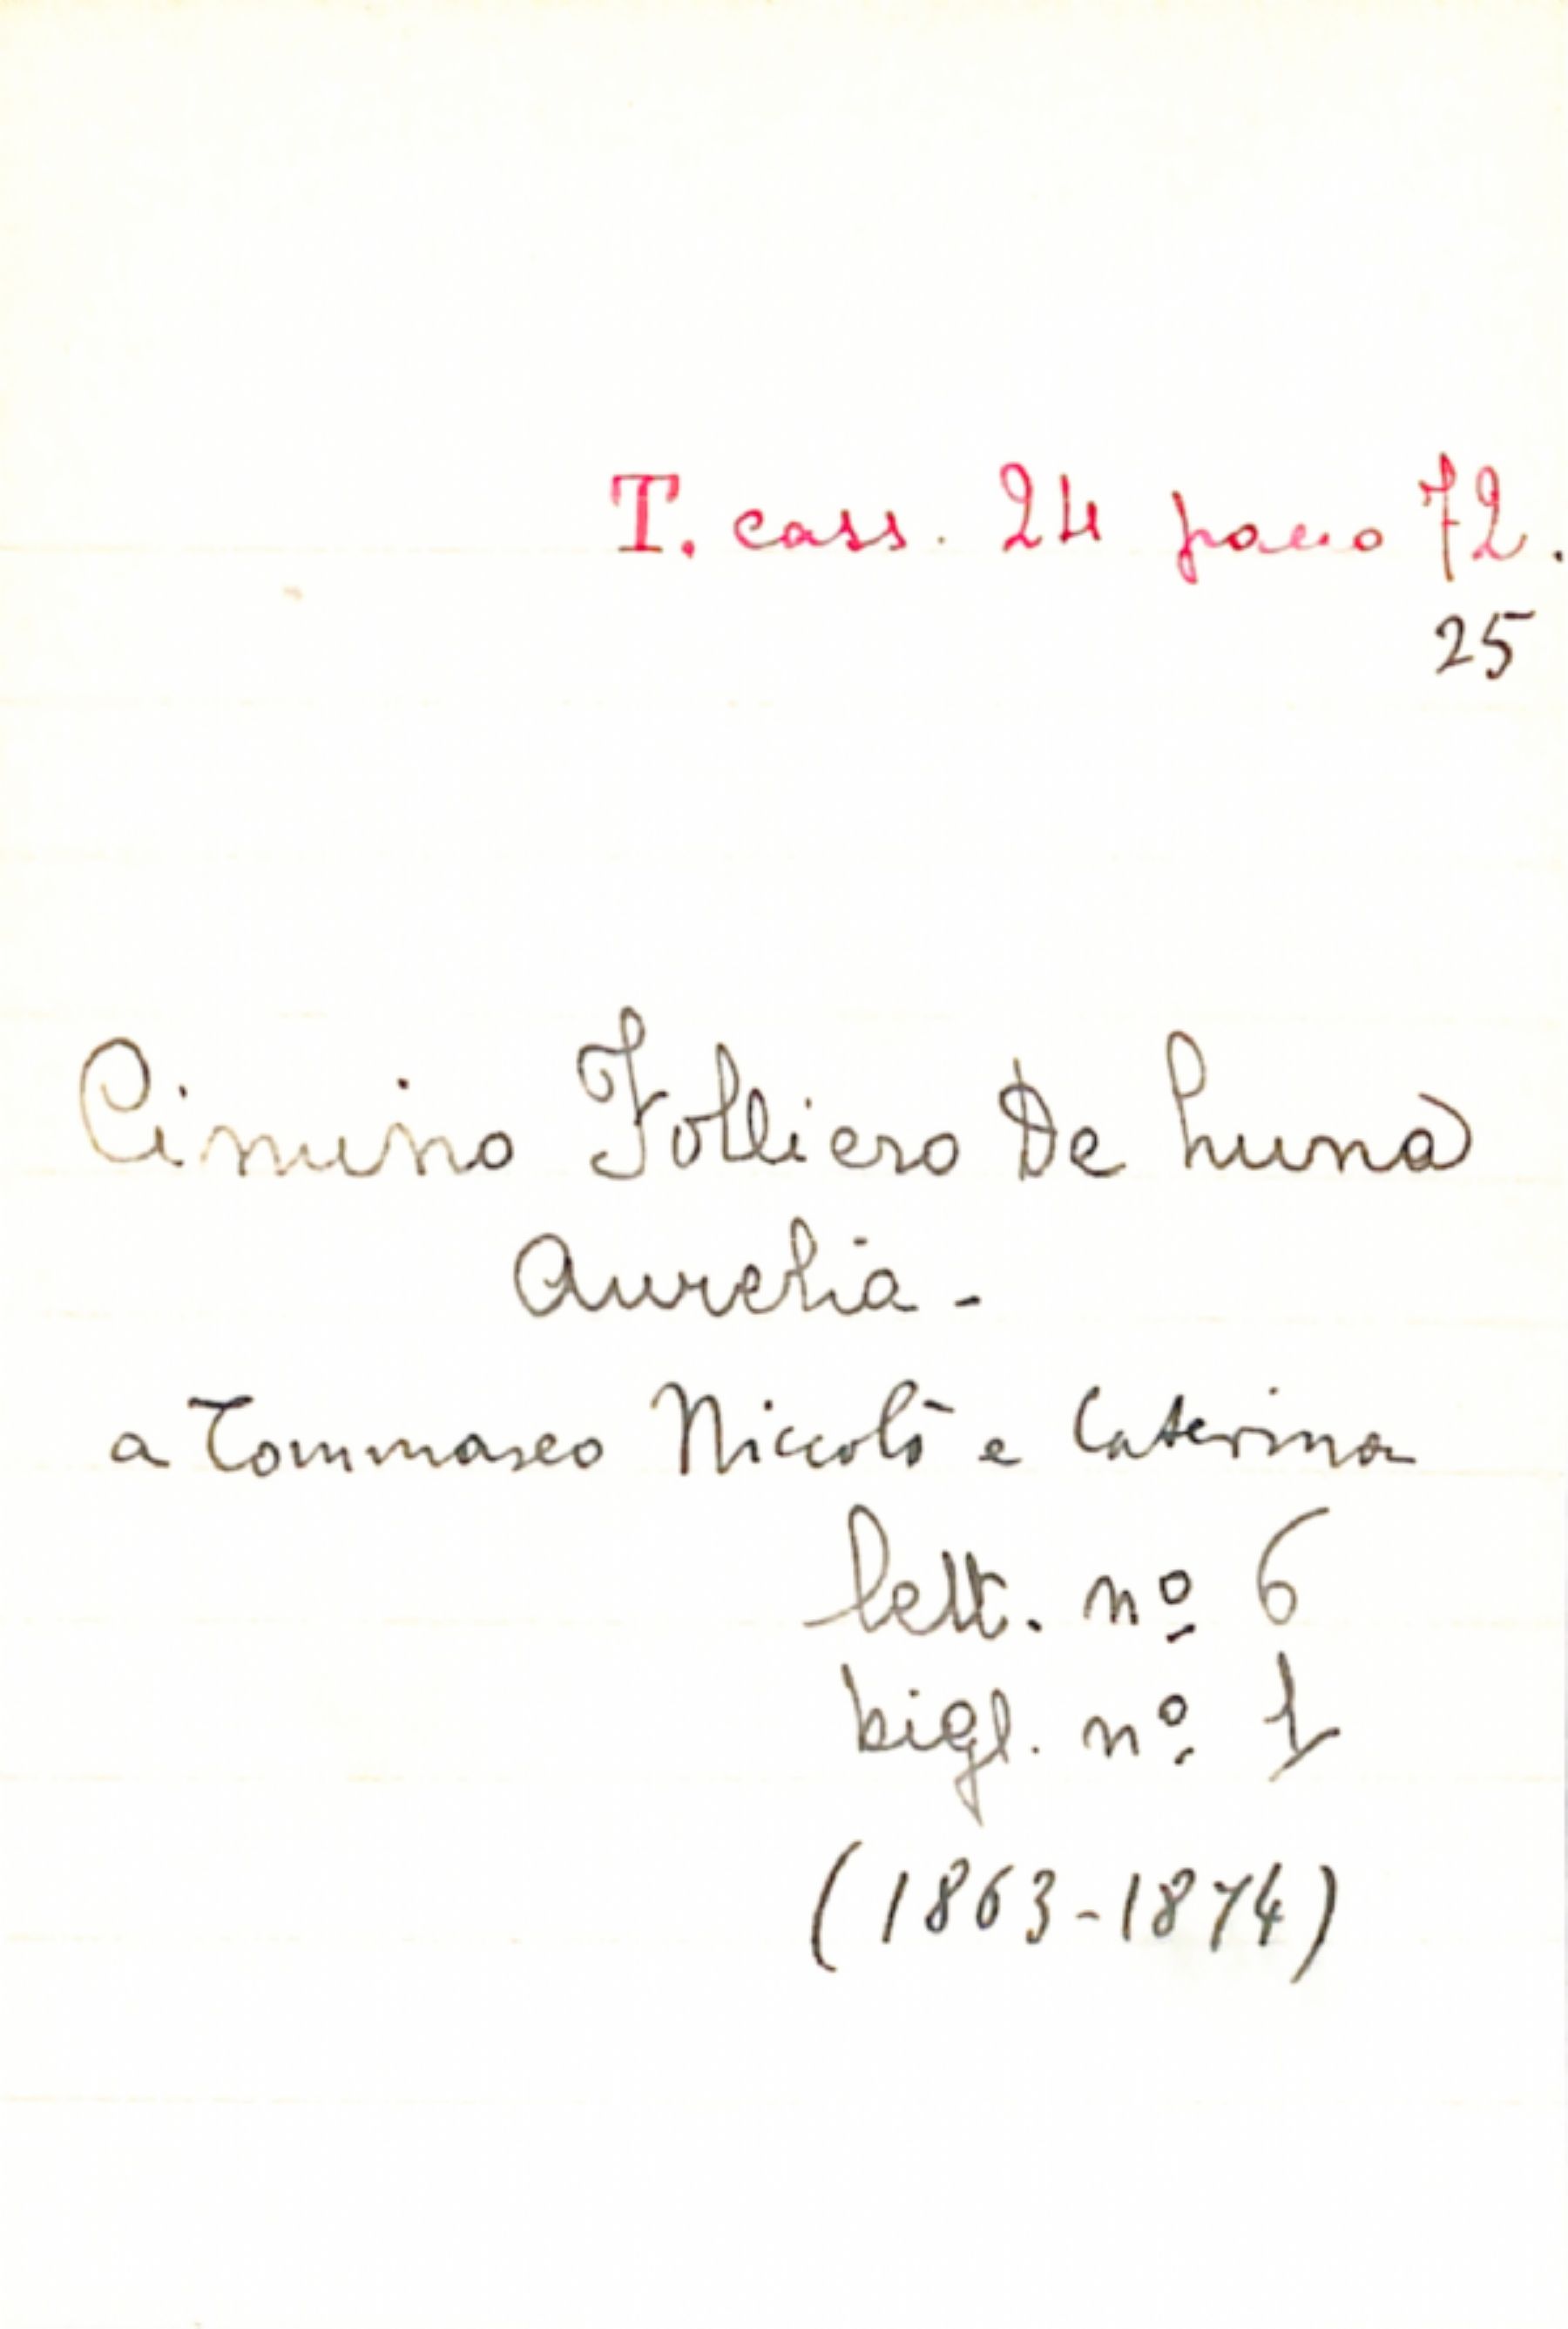 T. cass. 24 pacco 72.
25
Cimino Folliero De Luna
Aurelia -
a Tommaseo Niccolò e Caterina
lett. nº 6
bigl. nº 1
(1863-1874)